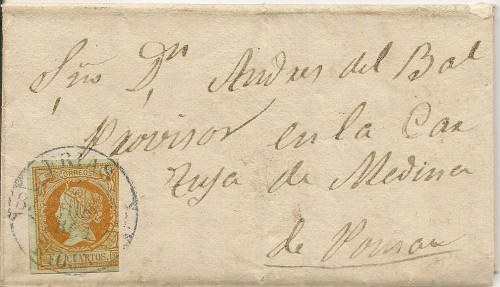 Sño Dn Andres del Bal
Provisor en la Car
tuja de Medina
de Pomar
CORREOS
CUARTOS.